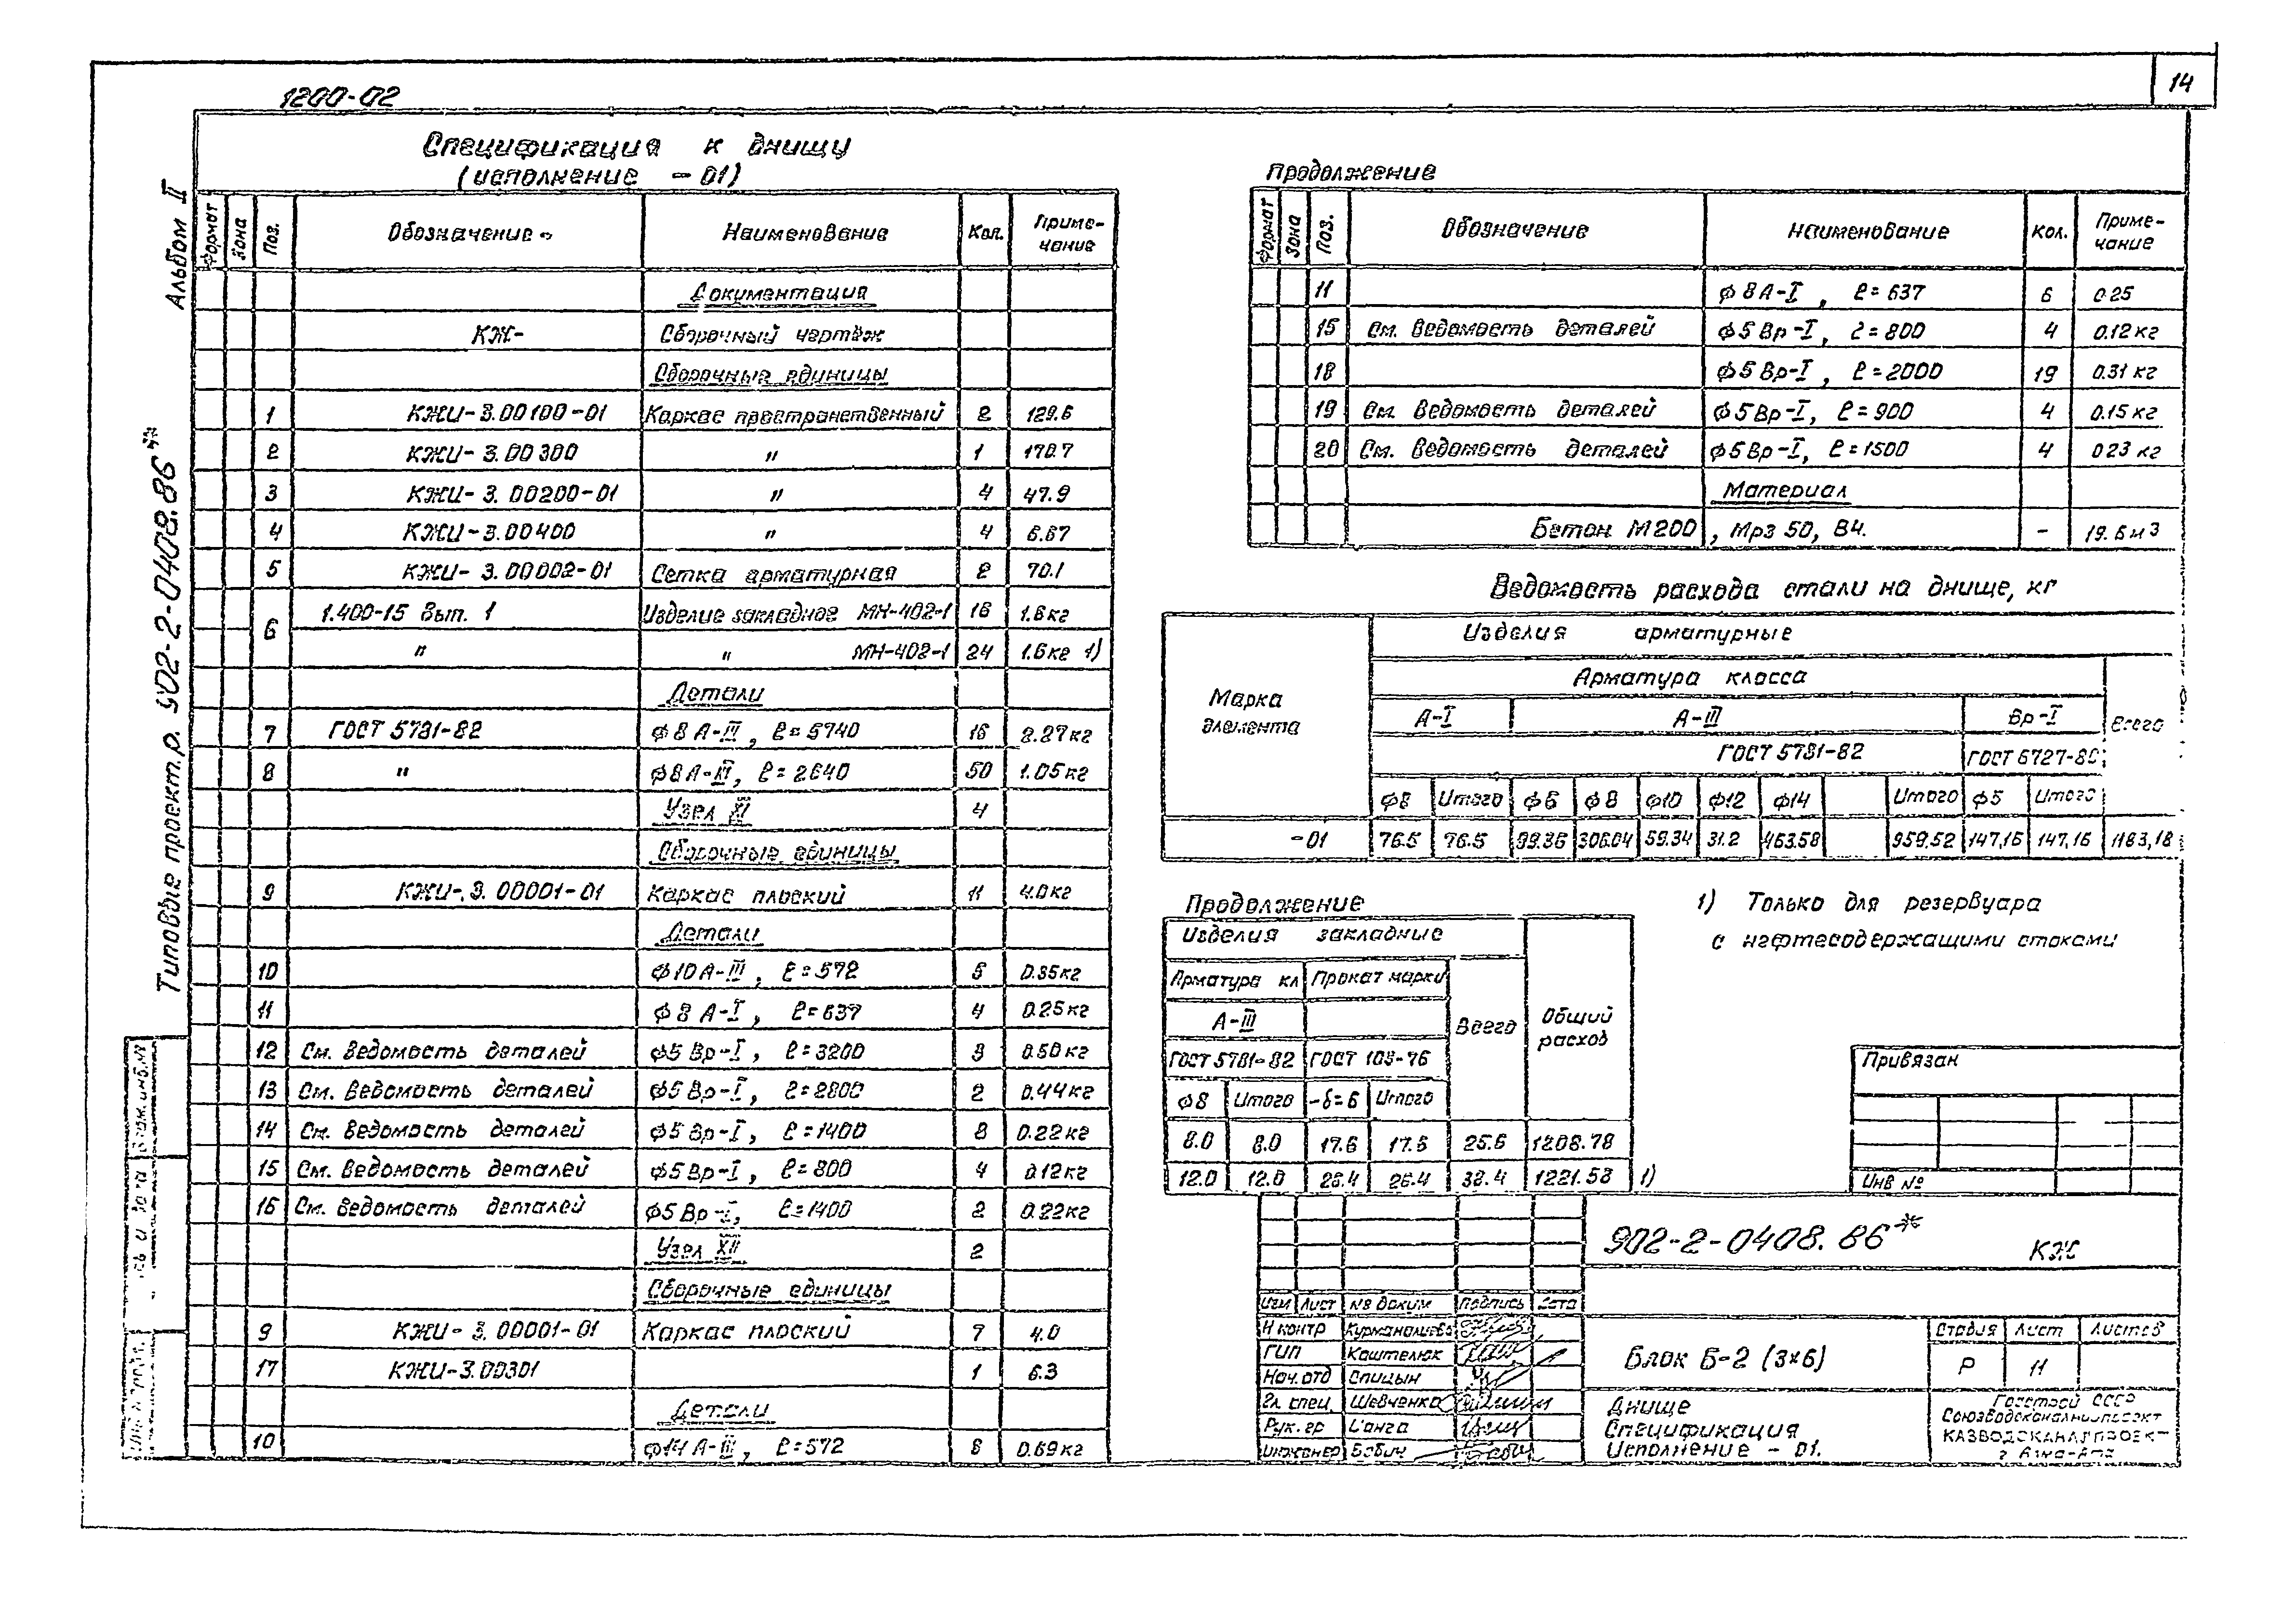 14
1200-02
Альбом II
Типовые проект.р. 902-2-0408.86*
Спецификация к днищу
(исполнение -01)
Формат Зона Поз. Обозначение Наименование Кол. Примечание
Документация
КЖ- Сборочный чертёж
Сборочные единицы
1 КЖИ-3.00100-01 Каркас пространственный 2 129.6
2 КЖИ-3.00300 " 1 170.7
3 КЖИ-3.00200-01 " 4 47.9
4 КЖИ-3.00400 " 4 6.67
5 КЖИ-3.00002-01 Сетка арматурная 2 70.1
6 1.400-15 Вып. 1 Изделие закладное МН-402-1 16 1.6кг
" " МН-402-1 24 1.6кг 1)
Детали
7 ГОСТ 5781-82 ф8 А-III, ℓ=5740 16 2.27кг
8 " ф8А-III, ℓ=2640 50 1.05кг
Узел XI 4
Сборочные единицы
9 КЖИ-3.00001-01 Каркас плоский 11 4.0кг
Детали
10 ф10А-III, ℓ=572 6 0.35кг
11 ф8 А-I, ℓ=637 4 0.25кг
12 См. Ведомость деталей ф5 Вр-I, ℓ=3200 3 0.50кг
13 См. Ведомость деталей ф5 Вр-I, ℓ=2800 2 0.44кг
14 См. Ведомость деталей ф5 Вр-I, ℓ=1400 8 0.22кг
15 См. Ведомость деталей ф5Вр-I, ℓ=800 4 0.12кг
16 См. Ведомость деталей ф5Вр-I, ℓ=1400 2 0.22кг
Узел XII 2
Сборочные единицы
9 КЖИ-3.00001-01 Каркас плоский 7 4.0
17 КЖИ-3.00301 1 6.3
Детали
10 ф14 А-III, ℓ=572 6 0.69кг
Продолжение
Формат Зона Поз. Обозначение Наименование Кол. Примечание
11 ф8А-I, ℓ=637 6 0.25
15 См. Ведомость деталей ф5Вр-I, ℓ=800 4 0.12кг
18 ф5Вр-I, ℓ=2000 19 0.31 кг
19 См. Ведомость деталей ф5Вр-I, ℓ=900 4 0.15кг
20 См. Ведомость деталей ф5Вр-I, ℓ=1500 4 0.23 кг
Материал
Бетон М200, Мрз 50, В4. - 19.6м3
Ведомость расхода стали на днище, кг
Марка элемента
Изделия арматурные
Арматура класса
А-I А-III Вр-I Всего
ГОСТ 5781-82 ГОСТ 6727-80
ф8 Итого ф6 ф8 ф10 ф12 ф14 Итого ф5 Итого
-01 76.5 76.5 99.36 306.04 59.34 31.2 463.58 959.52 147,16 147,16 1183,18
Продолжение
Изделия закладные
Арматура кл Прокат марки
А-III Всего Общий расход
ГОСТ 5781-82 ГОСТ 103-76
ф8 Итого -δ=6 Итого
8.0 8.0 17.6 17.6 25.6 1208.78
12.0 12.0 26.4 26.4 38.4 1221.58 1)
1) Только для резервуара
с нефтесодержащими стоками
Привязан
Инв №
902-2-0408.86* КЖ
Изм Лист № Докум Подпись Дата
Н контр Курманалиева
ГИП Каштелюк
Нач.отд Спицын
Гл. спец. Шевченко
Рук.гр Цанга
Инженер Бабич
Блок Б-2 (3×6)
Стадия Лист Листов
Р 11
Днище
Спецификация
Исполнение -01.
Госстрой СССР
Союзводоканалпроект
КАЗВОДОКАНАЛПРОЕКТ
г Алма-Ата